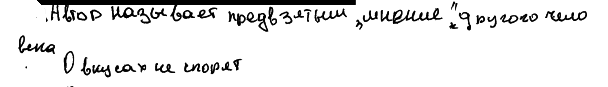 Автор называет предвзятым „мнение" другого чело
века
О вкусах не спорят